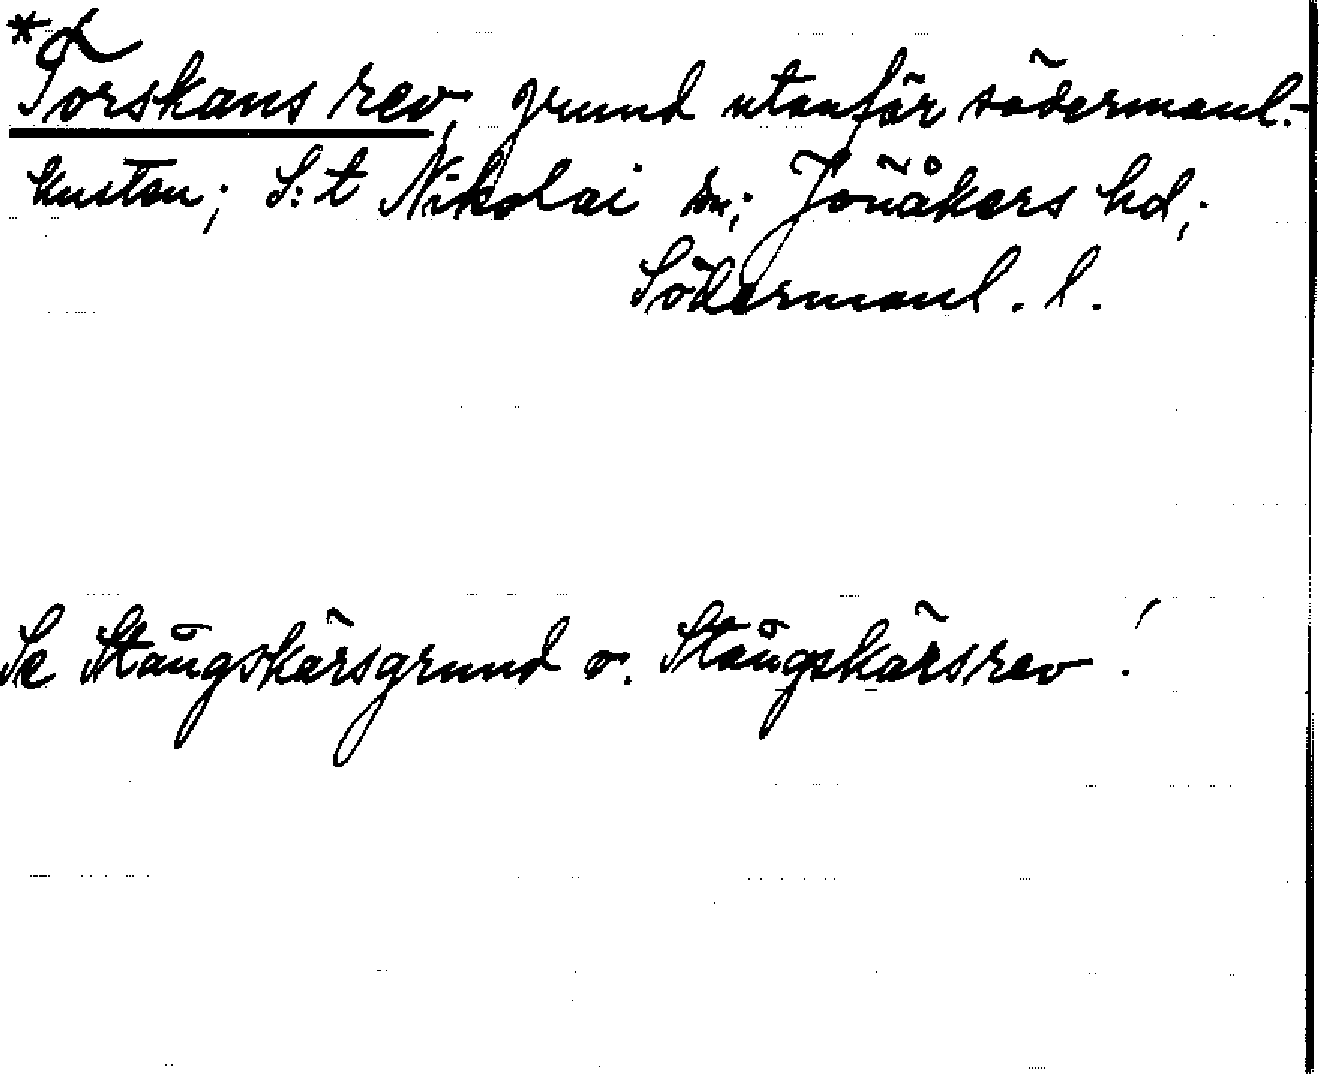 *Torskans rev, grund utanför södermanl.-
kusten; S:t Nikolai sn; Jönåkers hd;
Södermanl. l.
Se Stångskärsgrund o. Stångskärsrev!